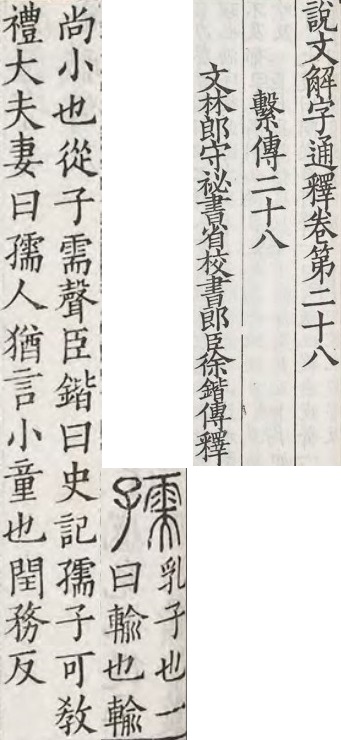 說文解字通釋卷第二十八
繫傳二十八
文林郎守祕書省校書郎臣徐鍇傳釋
孺乳子也一
曰輸也輸
尚小也從子需聲臣鍇曰史記孺子可敎
禮大夫妻曰孺人猶言小童也閏務反